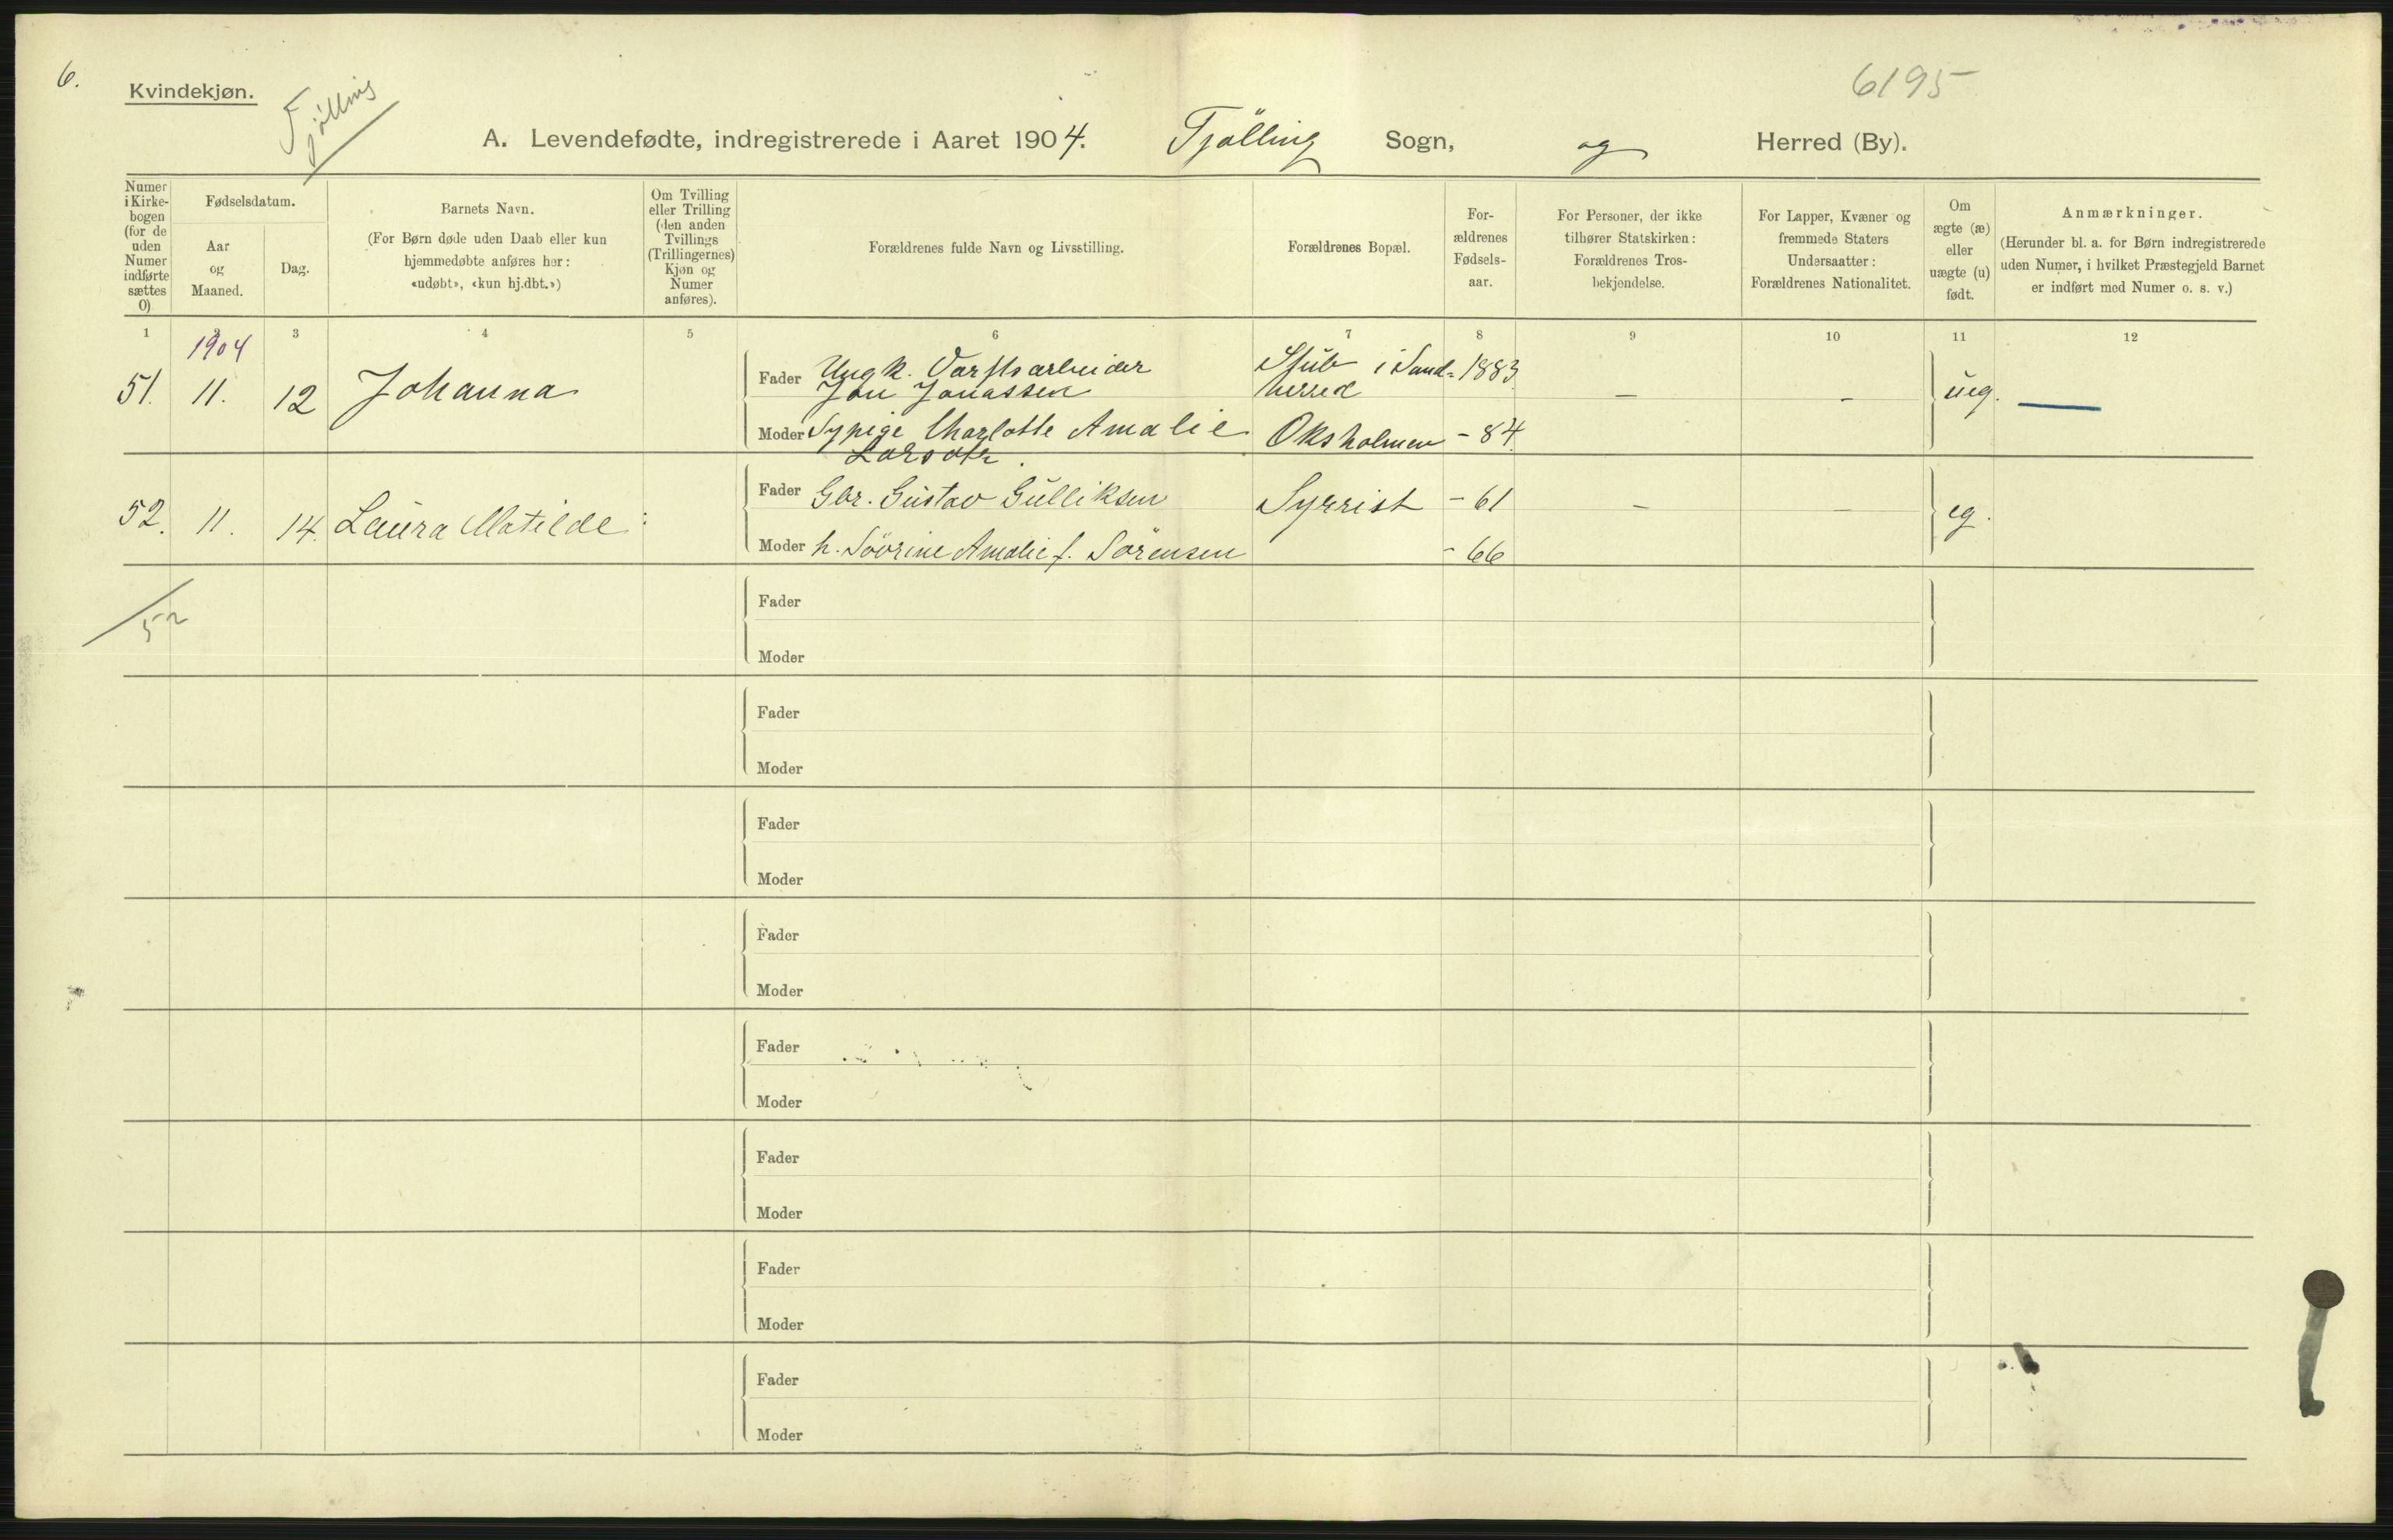 6.
Kvindekjøn.
Tjølling
6195
A. Levendefødte, indregistrerede i Aaret 1904. Tjölling Sogn, og Herred (By).
Numer i Kirkebogen (for de uden Numer indførte sættes 0)
Fødselsdatum.
Aar og Maaned.
Dag.
Barnets Navn.
(For Børn døde uden Daab eller kun
hjemmedøbte anføres her:
«udøbt», «kun hj.dbt.»)
Om Tvilling
eller Trilling
(den anden
Tvillings
(Trillingernes)
Kjøn og
Numer
anføres).
Forældrenes fulde Navn og Livsstilling.
Forældrenes Bopæl.
For-
ældrenes
Fødsels-
aar.
For Personer, der ikke
tilhører Statskirken:
Forældrenes Tros-
bekjendelse.
For Lapper, Kvæner og
fremmede Staters
Undersaatter:
Forældrenes Nationalitet.
Om
ægte (æ)
eller
uægte (u)
født.
Anmærkninger.
(Herunder bl. a. for Børn indregistrerede
uden Numer, i hvilket Præstegjeld Barnet
er indført med Numer o. s. v.)
1 2 3 4 5 6 7 8 9 10 11 12
1904
51. 11. 12 Johanna
Fader Ungk. Varftsarbeider i Sand- 1883
Jon Jonassen herred
— - ueg. —
Moder Sypige Charlotte Amalie Oksholmen - 84.
Larsdtr.
52. 11. 14. Laura Matilde
Fader Gbr. Gustav Gulliksen Syrrist - 61 — — eg.
Moder h. Amalie f. Sörensen - 66
52
Fader
Moder
Fader
Moder
Fader
Moder
Fader
Moder
Fader
Moder
Fader
Moder
Fader
Moder
Fader
Moder